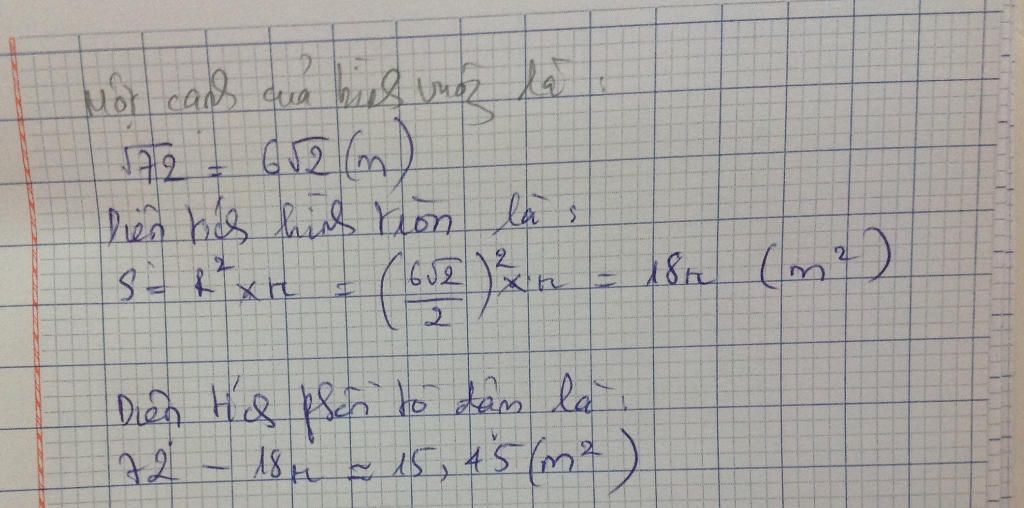 Một cạnh của hình vuông là :
√72 = 6√2 (m)
Diện tích hình tròn là :
S = R² × π = (6√2/2)² × π = 18π (m²)
Diện tích phần tô đậm là :
72 - 18π = 15,45 (m²)